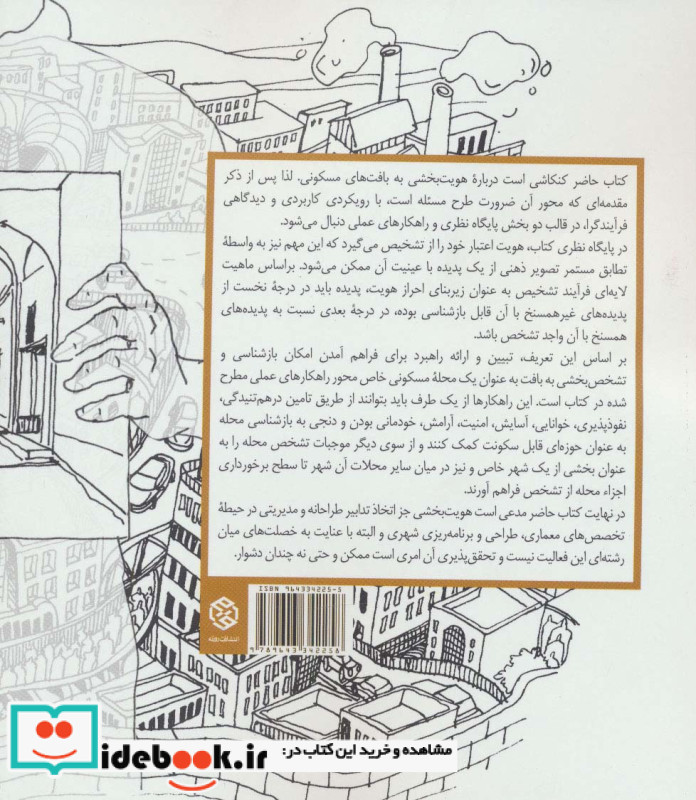 کتاب حاضر کنکاشی است دربارهٔ هویت‌بخشی به بافت‌های مسکونی. لذا پس از ذکر
مقدمه‌ای که محور آن ضرورت طرح مسئله است، با رویکردی کاربردی و دیدگاهی
فرآیندگرا، در قالب دو بخش پایگاه نظری و راهکارهای عملی دنبال می‌شود.
در پایگاه نظری کتاب، هویت اعتبار خود را از تشخیص می‌گیرد که این مهم نیز به واسطهٔ
تطابق مستمر تصویر ذهنی از یک پدیده با عینیت آن ممکن می‌شود. براساس ماهیت
لایه‌ای فرآیند تشخیص به عنوان زیربنای احراز هویت، پدیده باید در درجهٔ نخست از
پدیده‌های غیرهمسنخ با آن قابل بازشناسی بوده، در درجهٔ بعدی نسبت به پدیده‌های
همسنخ با آن واجد تشخص باشد.
بر اساس این تعریف، تبیین و ارائه راهبرد برای فراهم آمدن امکان بازشناسی و
تشخص‌بخشی به بافت به عنوان یک محلهٔ مسکونی خاص محور راهکارهای عملی مطرح
شده در کتاب است. این راهکارها از یک طرف باید بتوانند از طریق تامین درهم‌تنیدگی،
نفوذپذیری، خوانایی، آسایش، امنیت، آرامش، خودمانی بودن و دنجی به بازشناسی محله
به عنوان حوزه‌ای قابل سکونت کمک کنند و از سوی دیگر موجبات تشخص محله را به
عنوان بخشی از یک شهر خاص و نیز در میان سایر محلات آن شهر تا سطح برخورداری
اجزاء محله از تشخص فراهم آورند.
در نهایت کتاب حاضر مدعی است هویت‌بخشی جز اتخاذ تدابیر طراحانه و مدیریتی در حیطهٔ
تخصص‌های معماری، طراحی و برنامه‌ریزی شهری و البته با عنایت به خصلت‌های میان
رشته‌ای این فعالیت نیست و تحقق‌پذیری آن امری است ممکن و حتی نه چندان دشوار.
ISBN 964334225-5
9 789643 342258
انتشارات روزنه
مشاهده و خرید این کتاب در:
idebook.ir